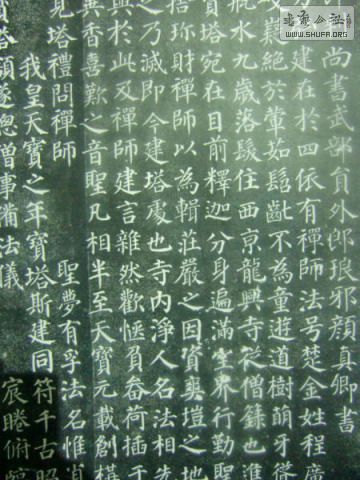 尚書武部員外郎琅邪顏真卿書
建在於四依有禪師法号楚金姓程廣
嶷絕於葷茹髫齔不為童遊道樹萌牙聳
瓶水九歲落髮住西京龍興寺從僧籙也進
寶塔宛在目前釋迦分身遍滿空界行勤聖
捨珍財禪師以為輯莊嚴之因資爽塏之地
之乃滅即今建塔處也寺內淨人名法相先
與於此及禪師建言雜然歡愜負畚荷插于
異香喜歎之音聖凡相半至天寶元載創構
見塔禮問禪師 聖夢有孚法名惟肖
我皇天寶之年寶塔斯建同符千古昭
寶塔額遂總僧事備法儀 宸睠俯臨
書法公社
WWW.SHUFA.ORG